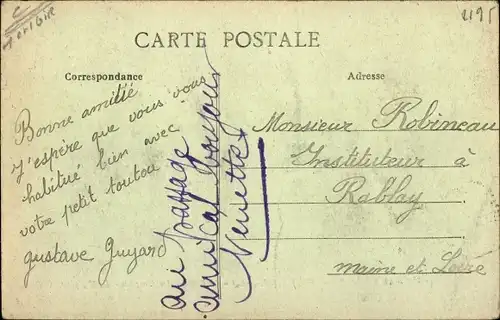 2195
CARTE POSTALE
Correspondance
Adresse
Bonne amitié
J'espère que vous vous
habitué bien avec
votre petit toutou
Gustave Guyard
au passage
amical bonjour
Monsieur Robineau
Instituteur à
Rablay
Maine et Loire